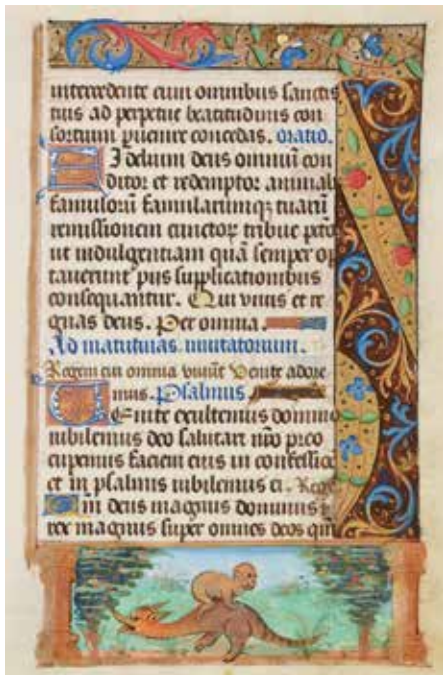 intercedente cum omnibus sanctis
tuis ad perpetue beatitudinis con
sortium puenire concedas. oratio.
Fidelium deus omniū con
ditor et redemptor animab
famulorū famularumqꝫ tuarū
remissionem cunctoꝝ tribue pctō
ut indulgentiam quā semper op
tauerunt piis supplicationibus
consequantur. Qui viuis et re
gnas deus. Per omnia.
Ad matutinas invitatorium.
Regem cui omnia viuūt Venite adore
mus. Psalmus
Uenite exultemus domino
iubilemus deo salutari nr̄o preo
cupemus faciem eius in confessiōe
et in psalmis iubilemus ei. Regē
Qm deus magnus dominus
rex magnus super omnes deos qm̄